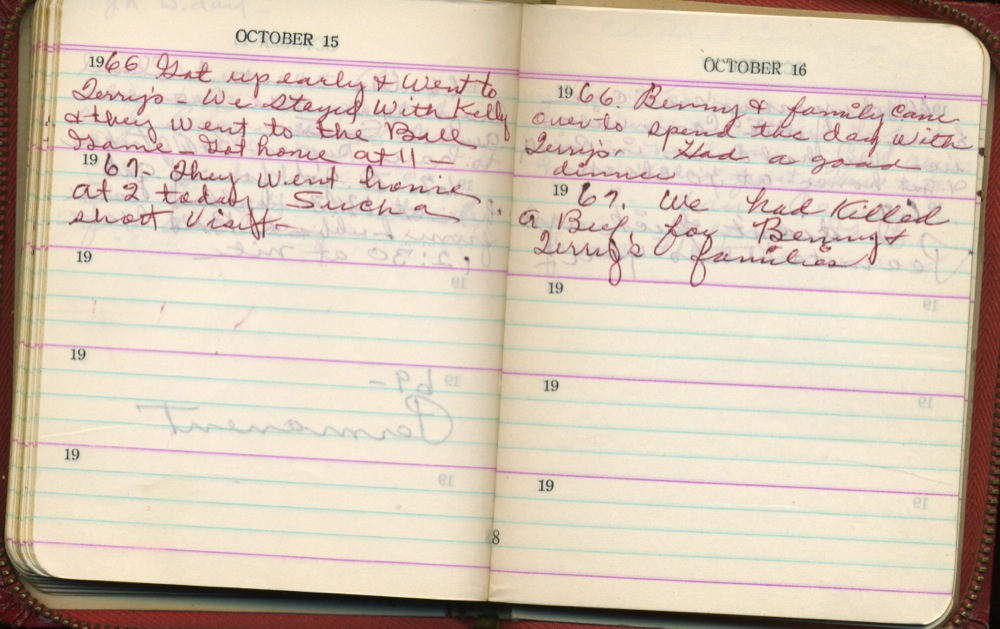 OCTOBER 15
1966 Got up early & went to
Terry's - We stayed with Kelly
& they went to the Ball
Game. Got home at 11 -
1967- They went home
at 2 today Such a
short Visit-
19
19
19
OCTOBER 16
1966. Benny & family came
over to spend the day with
Terry's. Had a good
dinner
1967. We had Killed
a Beef for Benny &
Terry's families
19
19
19
8